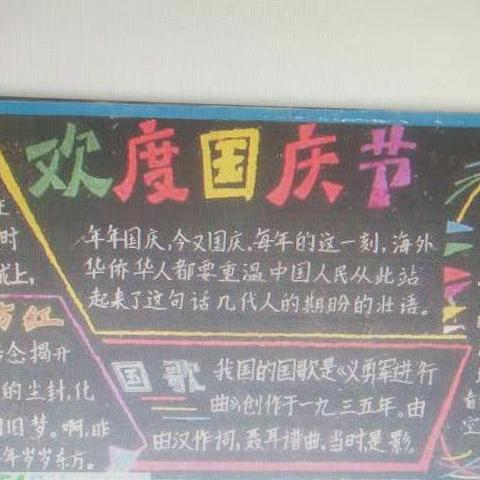 欢度国庆节
年年国庆,今又国庆。每年的这一刻,海外
华侨华人都要重温中国人民从此站
起来了这句话几代人的期盼的壮语。
时
上,
红
念揭开
的尘封,化
旧梦。啊,昨
年岁岁东方。
国歌
我国的国歌是《义勇军进行
曲》创作于一九三五年。由
田汉作词,聂耳谱曲。当时是影
音
空